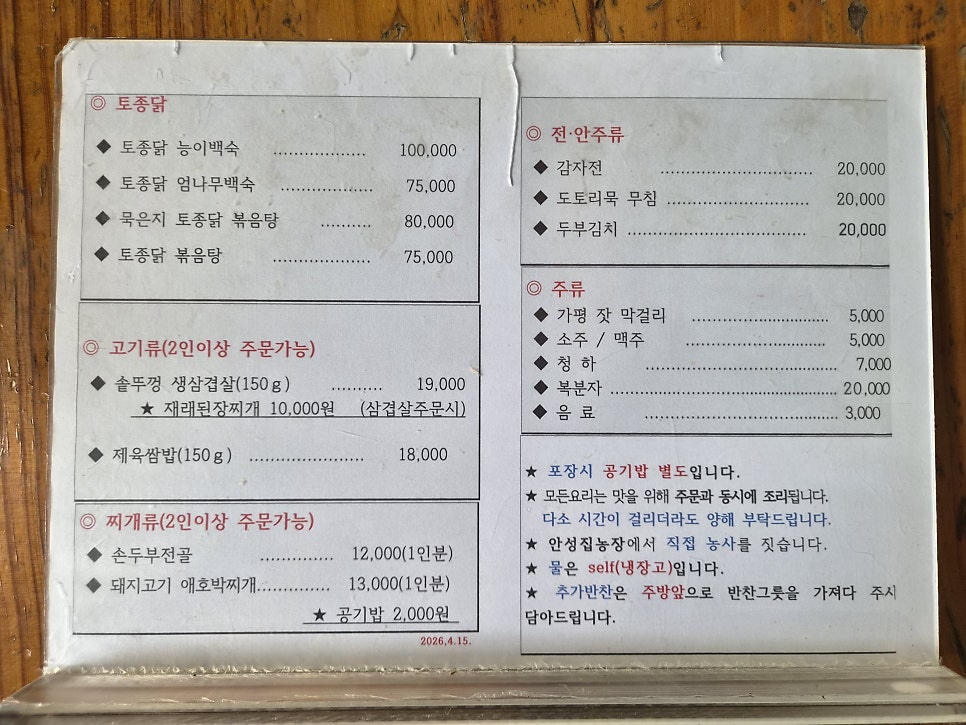 ◎ 토종닭
◆ 토종닭 능이백숙 .................. 100,000
◆ 토종닭 엄나무백숙 .................. 75,000
◆ 묵은지 토종닭 볶음탕 .......... 80,000
◆ 토종닭 볶음탕 ................... 75,000
◎ 고기류(2인이상 주문가능)
◆ 솥뚜껑 생삼겹살(150g) .......... 19,000
★ 재래된장찌개 10,000원 (삼겹살주문시)
◆ 제육쌈밥(150g) ...................... 18,000
◎ 찌개류(2인이상 주문가능)
◆ 손두부전골 .............. 12,000(1인분)
◆ 돼지고기 애호박찌개.............. 13,000(1인분)
★ 공기밥 2,000원
2026.4.15.
◎ 전·안주류
◆ 감자전 ............................. 20,000
◆ 도토리묵 무침 ........................... 20,000
◆ 두부김치 .................................. 20,000
◎ 주류
◆ 가평 잣 막걸리 ........................... 5,000
◆ 소주 / 맥주 ........................... 5,000
◆ 청 하 ..................................... 7,000
◆ 복분자 ........................................ 20,000
◆ 음 료 ................................... 3,000
★ 포장시 공기밥 별도입니다.
★ 모든요리는 맛을 위해 주문과 동시에 조리됩니다.
다소 시간이 걸리더라도 양해 부탁드립니다.
★ 안성집농장에서 직접 농사를 짓습니다.
★ 물은 self(냉장고)입니다.
★ 추가반찬은 주방앞으로 반찬그릇을 가져다 주시
담아드립니다.